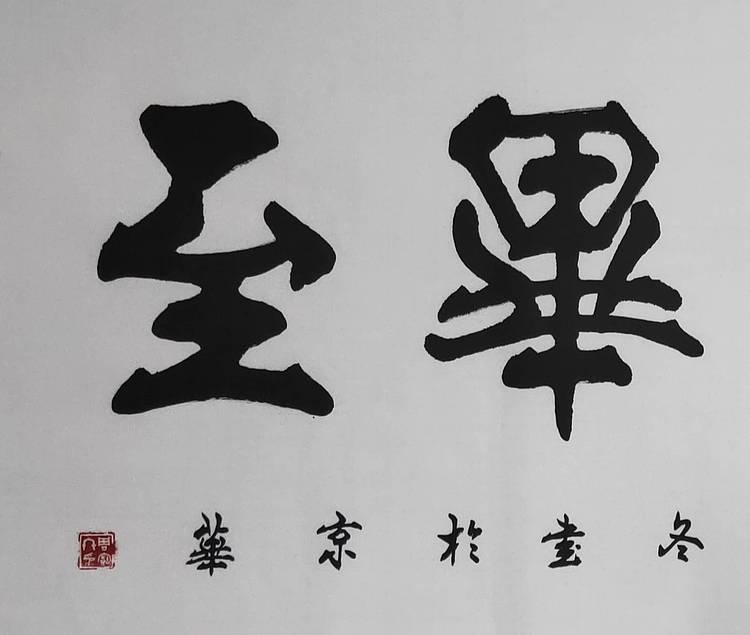 畢至
冬書於京華